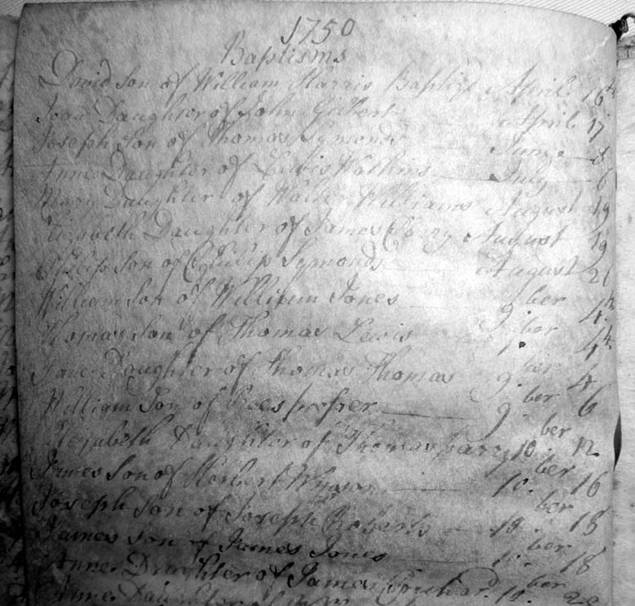 1750
Baptisms
David son of William Harris Baptizd April 16th
Joan Daughter of John Gilbert April 17
Joseph Son of Thomas Symonds June 3
Anne Daughter of Lewis Watkins July 6
Mary Daughter of Walter Williams August 19
Elizabeth Daughter of James August 19
Philip son of Philip Symonds August 21
William Son of William Jones 9.ber 4th
Thomas son of Thomas Lewis 9.ber 4th
Jane Daughter of Thomas Thomas 9.ber 4
William Son of Rees prosser 9.ber 6
Elizabeth Daughter of Thomas parry 10.ber 12
James Son of Herbert 10.ber 16
Joseph Son of Joseph Roberts 10.ber 18
James son of James Jones 10.ber 18
Anne Daughter of James 10.ber 20
Anne Daughter of